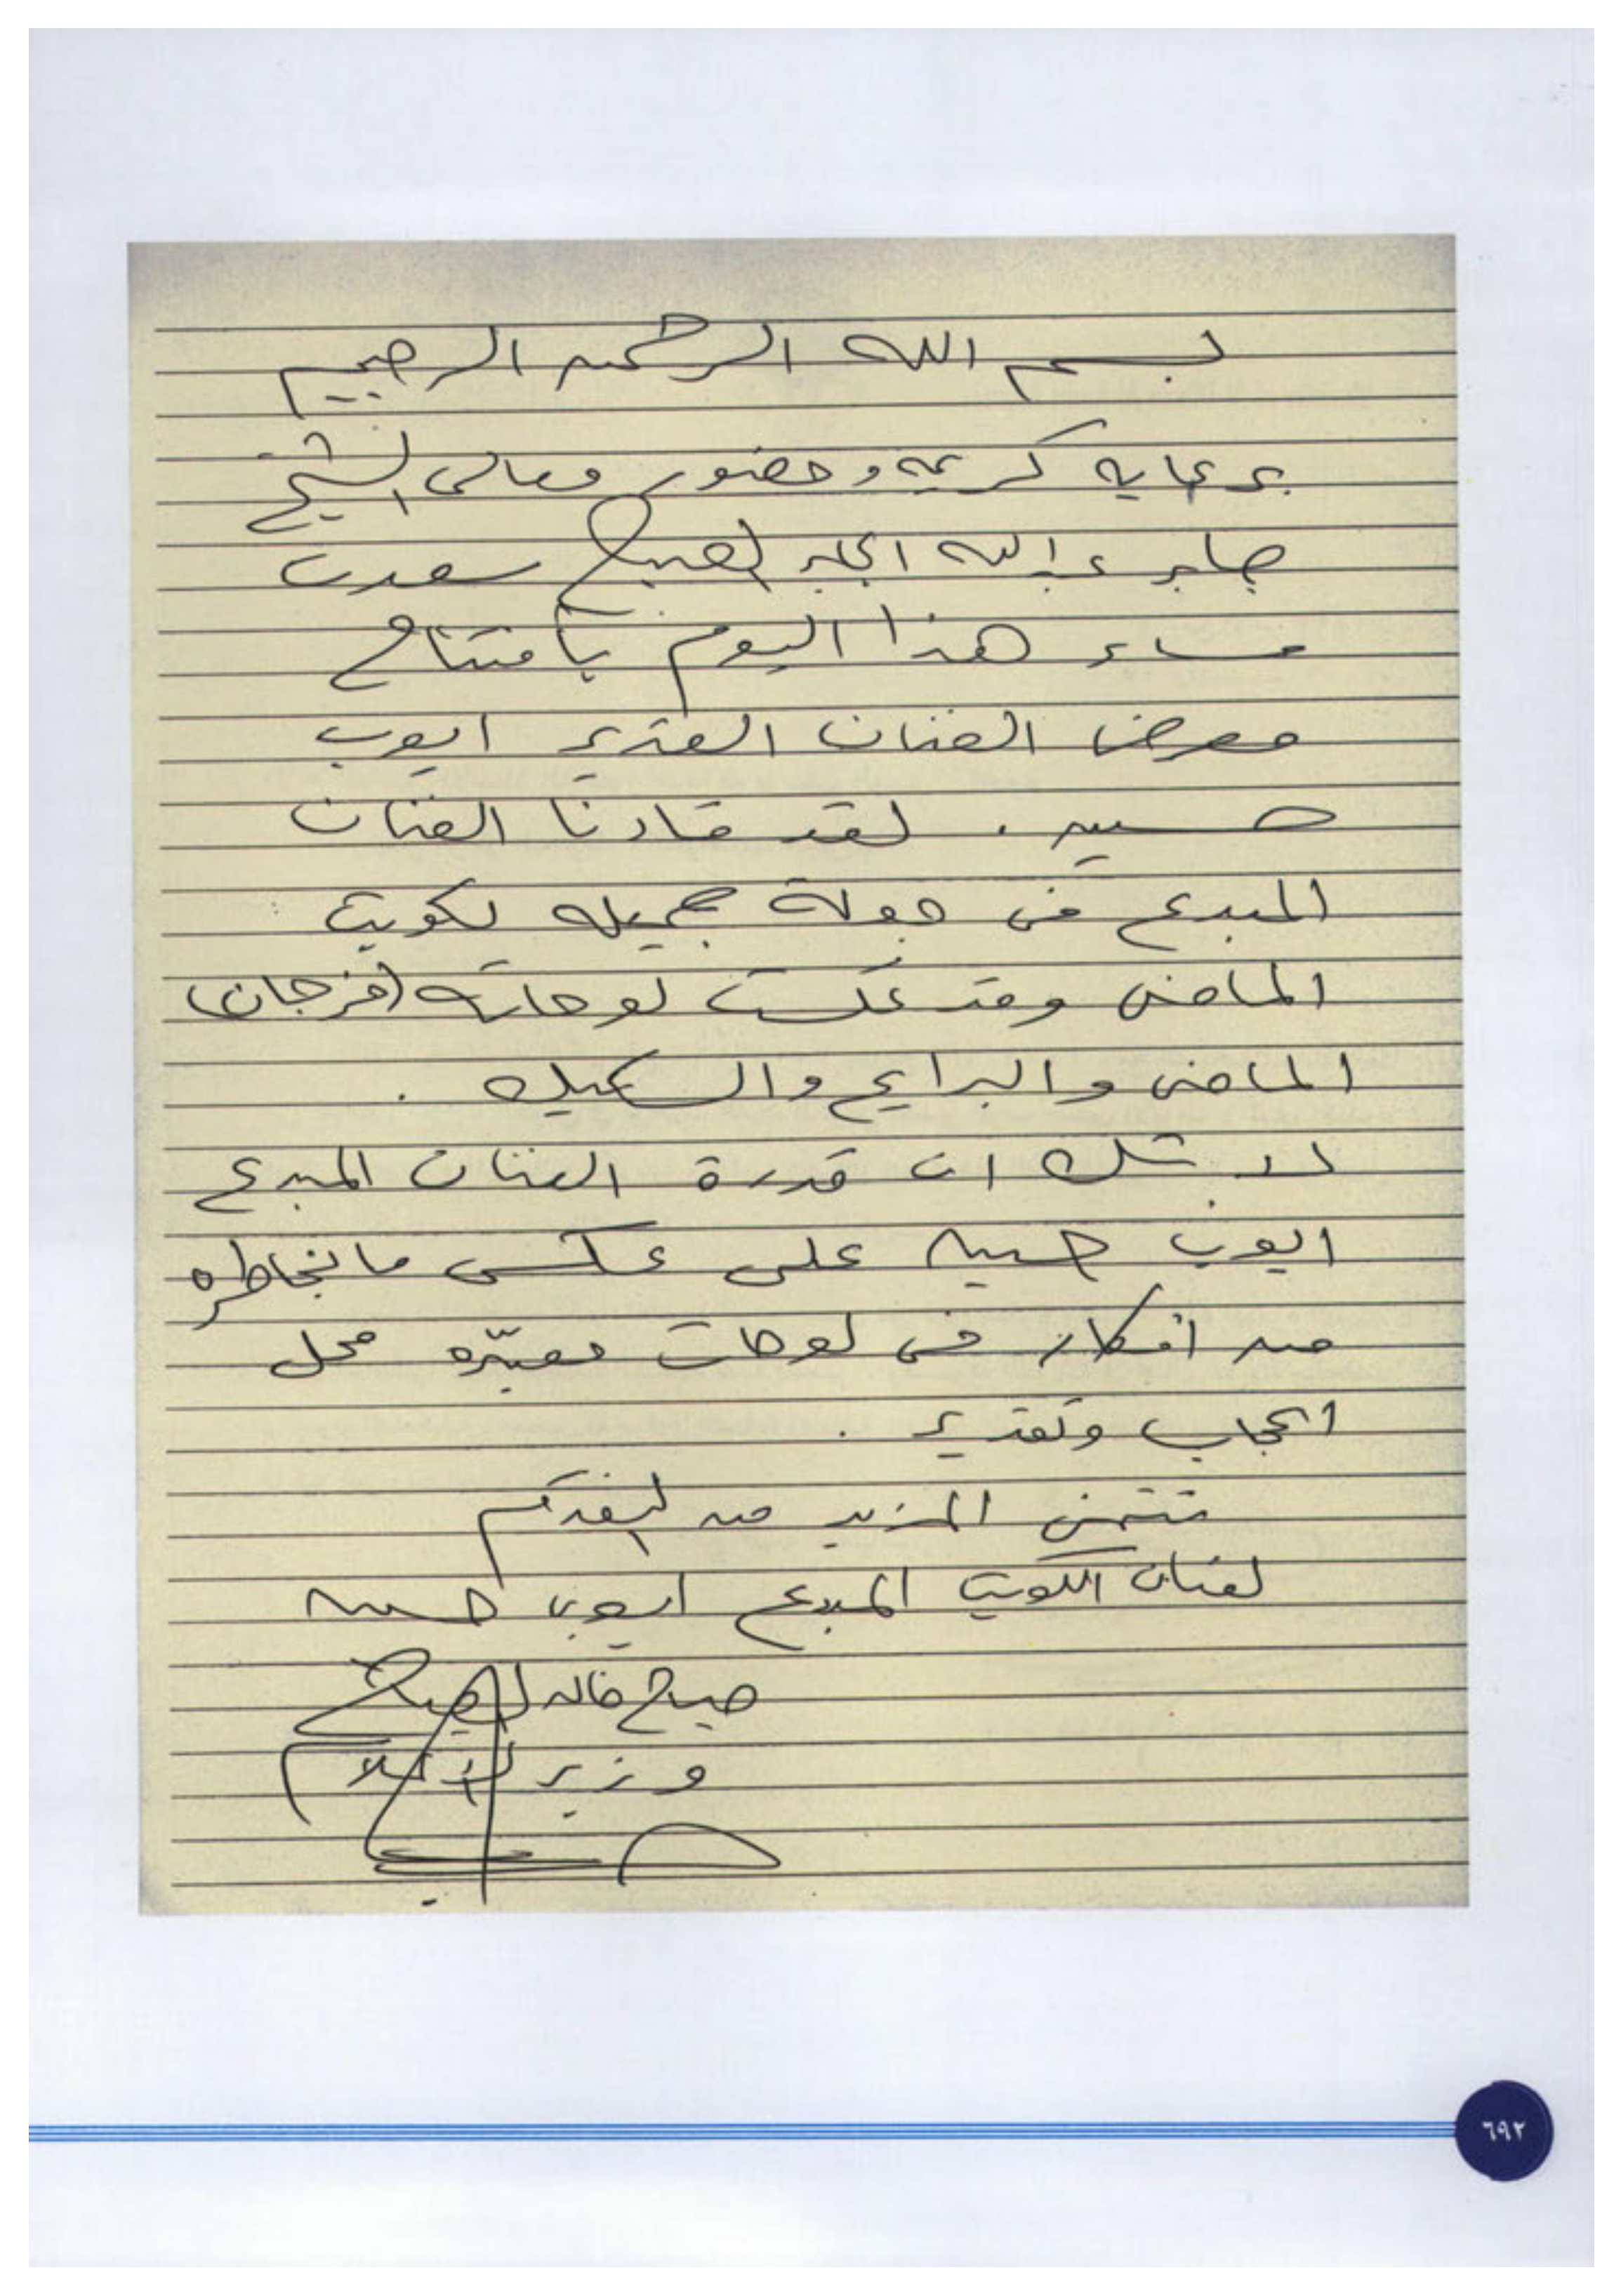 بسم الله الرحمن الرحيم
برعاية كريمه وحضور معالي الشيخ
جابر عبدالله الجابر الصباح سعدت
مساء هذا اليوم بافتتاح
معرض الفنان القدير ايوب
حسين . لقد قادنا الفنان
المبدع في جولة جميله لكويت
الماضي وقد عكست لوحاته (فرجان)
الماضي والبرايح والسكيك .
لا شك ان قدرة الفنان المبدع
ايوب حسين على عكس ما بخاطره
من افكار في لوحات معبّره محل
اعجاب وتقدير .
نتمنى المزيد من التقدم
لفنان الكويت المبدع ايوب حسين
صباح خالد الصباح
وزير الاعلام
٦٩٢